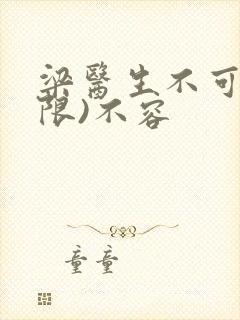 梁醫生不可
限)不容
童童